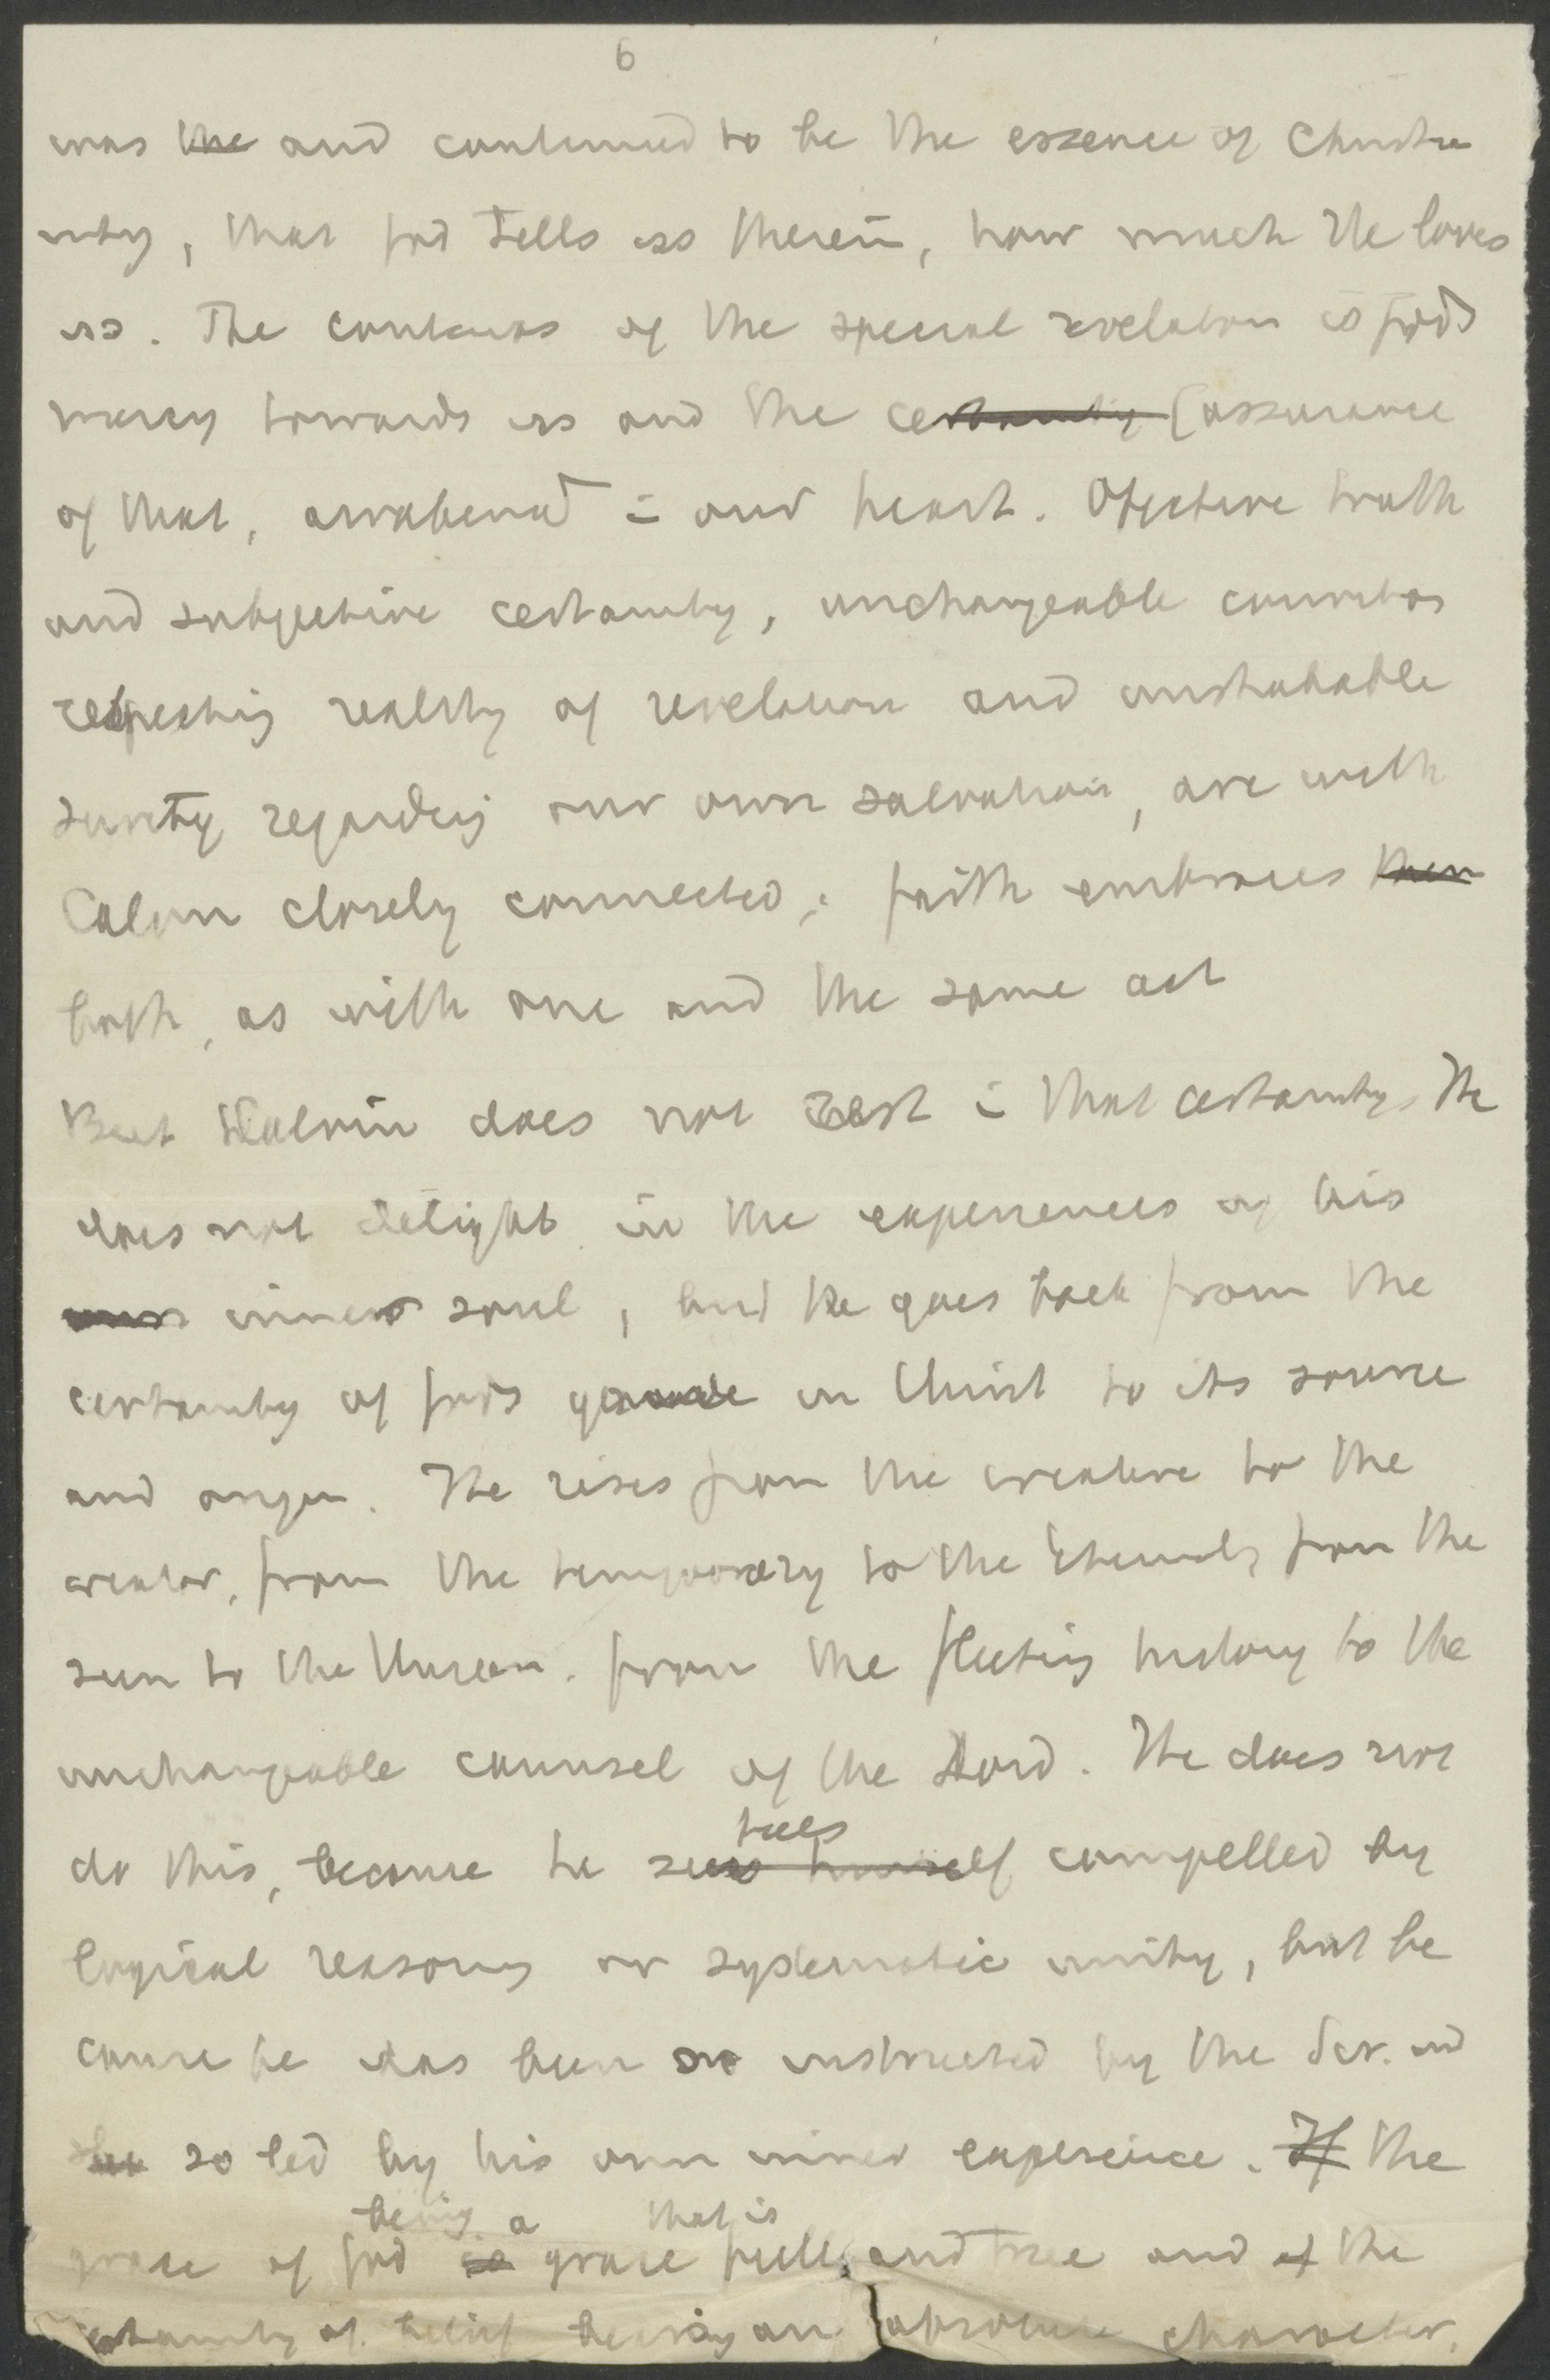 6
was the and continued to be the essence of Christia
nity, that God tells us therein, how much He loves
us. The contents of the special revelation is God's
mercy towards us and the certainty (assurance
of that, awakened in our heart. Objective truth
and subjective certainty, unchangeable
respecting reality of revelation and unshakable
surety regarding our own salvation, are with
Calvin closely connected; faith embraces them
both, as with one and the same act
But Calvin does not rest in that certainty. He
does not delight in the experiences of his
inner soul, but he goes back from the
certainty of God's grace in Christ to its source
and origin. He rises from the creature to the
creator, from the temporary to the eternal, from the
seen to the Unseen. from the fleeting history to the
unchangeable counsel of the Lord. He does not
feels
do this, because he sees himself compelled by
logical reasoning or systematic unity, but be
cause he has been so instructed by the Scr. and
so led by his own inner experience. If the
being a that is
grace of God is grace full and free and if the
certainty of belief bearing an absolute character,